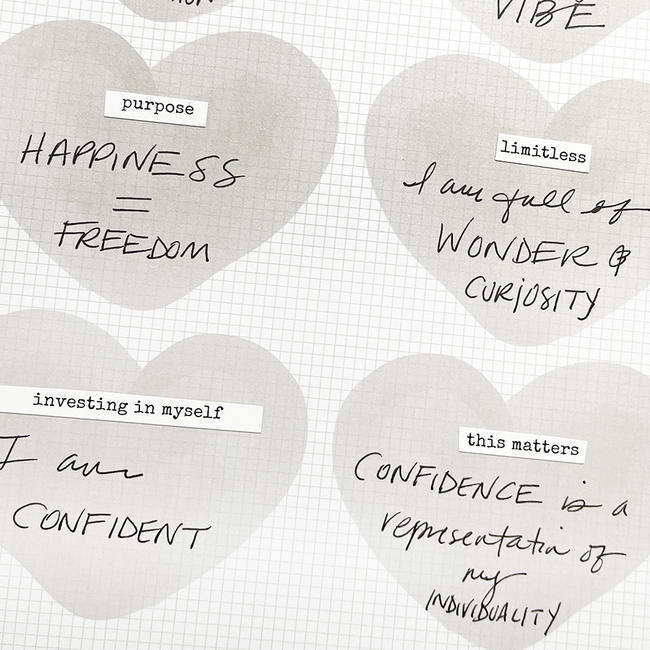 VIBE
purpose
HAPPINESS
=
FREEDOM
limitless
I am full of
WONDER &
CURIOSITY
investing in myself
I am
CONFIDENT
this matters
CONFIDENCE is a
representation of
my
INDIVIDUALITY